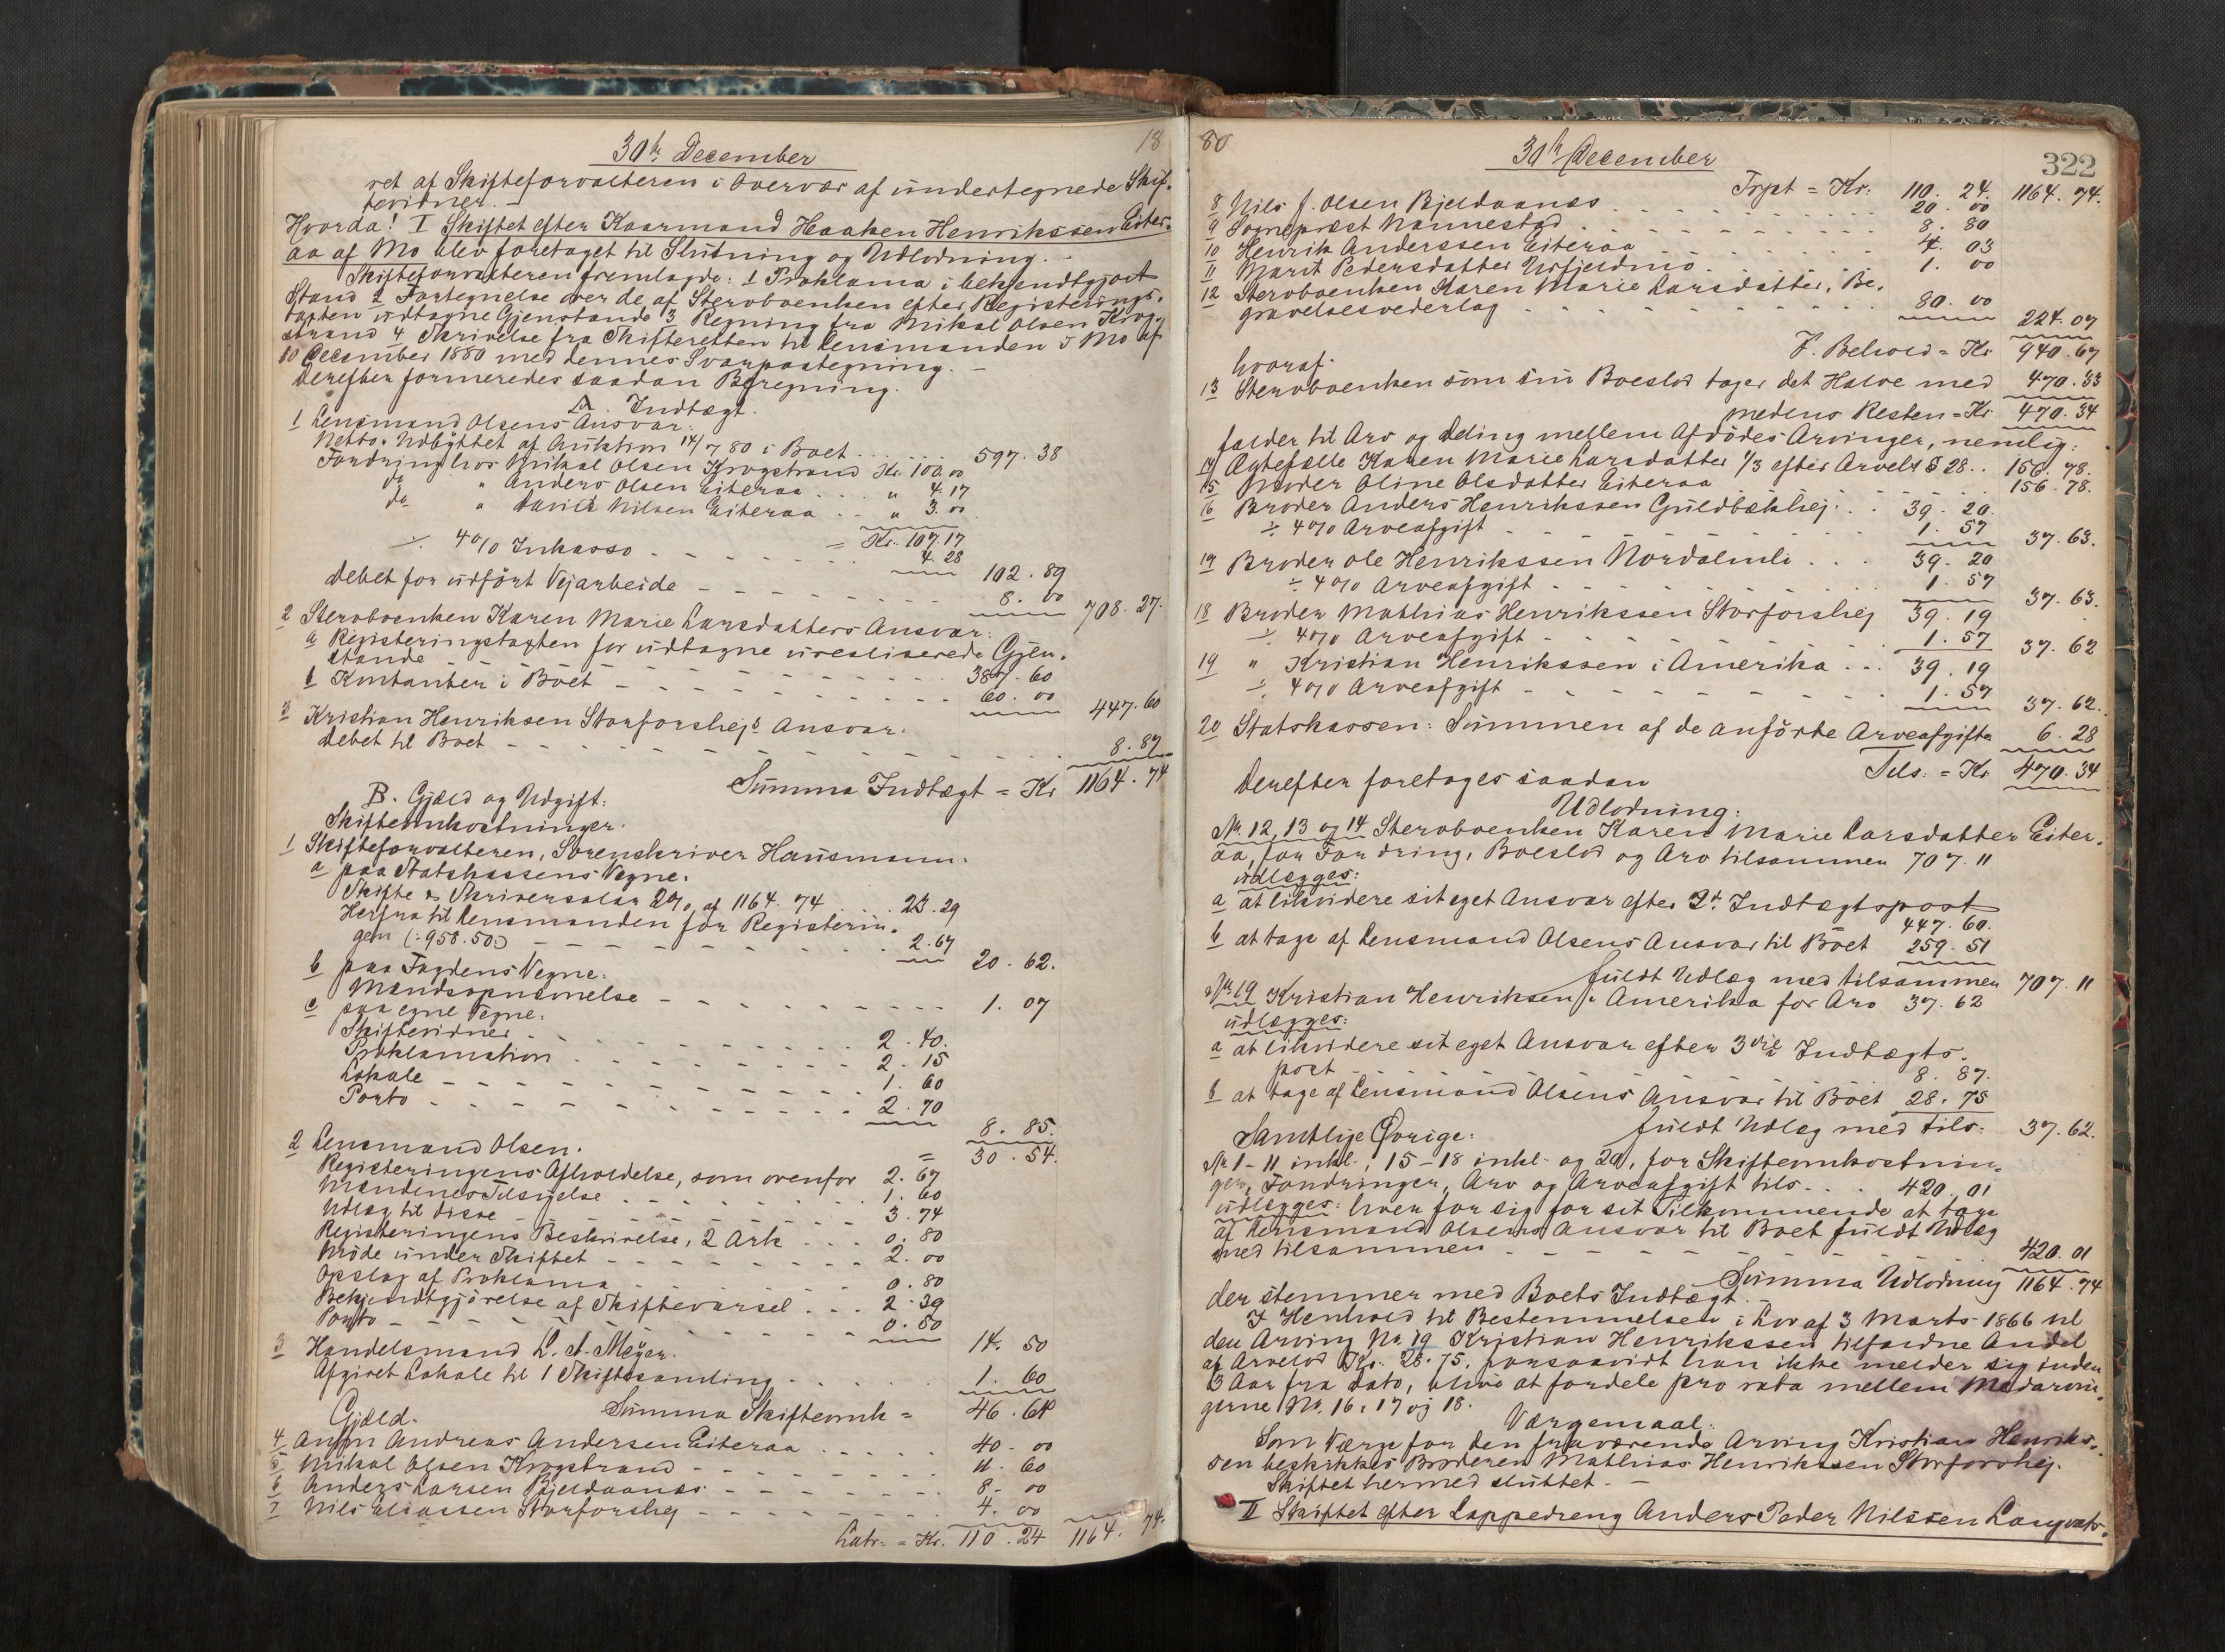 30te December 18
ret af Skifteforvalteren i Overvær af undertegnede Skif-
tevidner. -
Hvorda! I Skiftet efter Kaarmand Haaken Henrikssen Eiter-
aa af Mo blev foretaget til Slutning og Udlodning. -
Skifteforvalteren fremlagde: 1 Proklama i bekjendtgjort
Stand 2 Fortegnelse over de af Stervboenken efter Registerings-
taxten udtagne Gjenstande 3 Regning fra Mikal Olsen Krog-
strand 4 Skrivelse fra Skifteretten til Lensmanden i Mo af
10 December 1880 med dennes Svarpaategning. -
Derefter formeredes saadan Beregning.
A. Indtægt.
1 Lensmand Olsens Ansvar:
Netto Udbyttet af Auktion 14/7 80 i Boet . . . 597. 38
Fordring hos Mikal Olsen Krogstrand Kr. 100. 00
do " Anders Olsen Eiteraa . . . " 4. 17
do " David Nilsen Eiteraa . . " 3. 00
= Kr. 107. 17
÷ 4% Inkasso - - - - 4. 28
102. 89
Debet for udført Vejarbeide - - - - 8. 00
708. 27.
2 Stervboenken Karen Marie Larsdatters Ansvar:
a Registeringstaxten for udtagne urealiserede Gjen-
stande - - - - 387. 60
b Kontanter i Boet - - - - 60. 00
447. 60
3 Kristian Henriksen Storforshejs Ansvar.
Debet til Boet - - - - 8. 87
Summa Indtægt = Kr 1164. 74
B. Gjæld og Udgift:
Skifteomkostninger.
1 Skifteforvalteren, Sorenskriver Hausmann:
a paa Statskassens Vegne.
Skifte & Skriversalær 2% af 1164. 74 . . . 23. 29
Herfra til Lensmanden for Registerin-
gen (: 958. 50:) - - - - 2. 67
20. 62.
b paa Fogdens Vegne:
Mandsopnævnelse - - - - 1. 07
c paa egne Vegne:
Skiftevidner - - - - 2. 40.
Proklamation - - - - 2. 15
Lokale - - - - 1. 60
Porto - - - - 2. 70
8. 85.
= 30. 54.
2 Lensmand Olsen.
Registeringens Afholdelse, som ovenfor 2. 67
Mændenes Tilsigelse . . . . 1. 60
Udlæg til disse - - - - 3. 74
Registeringens Beskrivelse, 2 Ark . . . 0. 80
Møde under Skiftet - - - - 2. 00
Opslag af Proklama - - - - 0. 80
Bekjendtgjørelse af Skiftevarsel . . . 2. 39
Porto - - - - 0. 50
14. 50
3 Handelsmand L. A. Meyer.
Afgivet Lokale til 1 Skiftesamling . . . 1. 60
Summa Skifteomk = 46. 64
Gjæld.
4 Anton Andreas Andersen Eiteraa . . . 40. 00
5 Mikal Olsen Krogstrand - - - - 11. 60
6 Anders Larsen Bjeldaanæs - - - - 8. 00
7 Nils Eliassen Storforshej - - - - 4. 00
Latr = Kr. 110. 24 1164. 74.
80 30te December
322
Trpt = Kr: 110. 24. 1164. 74.
8 Nils J. Olsen Bjeldaanæs . . . . 20. 00
9 Sognepræst Nannestad . . . . 8. 80
10 Henrik Anderssen Eiteraa . . . . 4. 03
11 Marit Pedersdatter Urfjeldmo . . . . 1. 00
12 Stervboenken Karen Marie Larsdatter, Be-
gravelsesvederlag - - - - 80. 00
224. 07
F. Behold = Kr 940. 67
hvoraf:
13 Stervboenken som sin Boeslod tager det Halve med 470. 33
medens Resten = Kr 470. 34
falder til Arv og Deling mellem Afdødes Arvinger, nemlig:
14 Ægtefælle Karen Marie Larsdatter 1/3 efter Arvels § 28 . . 156. 78.
15 Moder Oline Olsdatter Eiteraa . . . . 156. 78.
16 Broder Anders Henrikssen Guldbækhej . . . 39. 20.
÷ 4% Arveafgift - - - - 1. 57
37. 63.
17 Broder Ole Henrikssen Nordalmli . . . 39. 20
÷ 4% Arveafgift - - - - 1. 57
37. 63.
18 Broder Mathias Henrikssen Storforshej 39. 19
÷ 4% Arveafgift - - - - 1. 57
37. 62
19 " Kristian Henrikssen i Amerika . . . 39. 19
÷ 4% Arveafgift - - - - 1. 57
37. 62.
20 Statskassen: Summen af de anførte Arveafgifter 6. 28
Tils. = Kr 470. 34
Derefter foretages saadan
Udlodning:
No. 12, 13 og 14 Stervboenken Karen Marie Larsdatter Eiter-
aa, for Fordring, Boeslod og Arv tilsammen 707. 11
udlægges:
a at likvidere sit eget Ansvar efter 2d Indtægtspost
447. 60.
b at tage af Lensmand Olsens Ansvar til Boet 259. 51
fuldt Udlæg med tilsammen 707. 11
No. 19 Kristian Henriksen i Amerika for Arv 37. 62
udlægges:
a at likvidere sit eget Ansvar efter 3die Indtægts-
post - - - - 8. 87.
b at tage af Lensmand Olsens Ansvar til Boet 28. 75
fuldt Udlæg med tils. 37. 62.
Samtlige Øvrige:
No 1-11 inkl., 15-18 inkl. og 20, for Skifteomkostnin-
ger, Fordringer, Arv og Arveafgift tils . . . 420. 01
udlægges: hver for sig for sit Tilkommende at tage
af Lensmand Olsens Ansvar til Boet fuldt Udlæg
med tilsammen - - - - 420. 01
Summa Udlodning 1164. 74
der stemmer med Boets Indtægt. -
I Henhold til Bestemmelsen i Lov af 3 Marts 1866 vil
den Arving No. 19 Kristian Henrikssen tilfaldne Andel
af Arvelod Kr. 28. 75, forsaavidt han ikke melder sig inden
3 Aar fra Dato, blive at fordele pro rata mellem Medarvin-
gerne No. 16, 17 og 18.
Værgemaal:
Som Værge for den fraværende Arving Kristian Henriks-
sen beskikkes Broderen Mathias Henrikssen Storforshej.
Skiftet hermed sluttet. -
II Skiftet efter Lappedreng Anders Peder Nilssen Langvats-